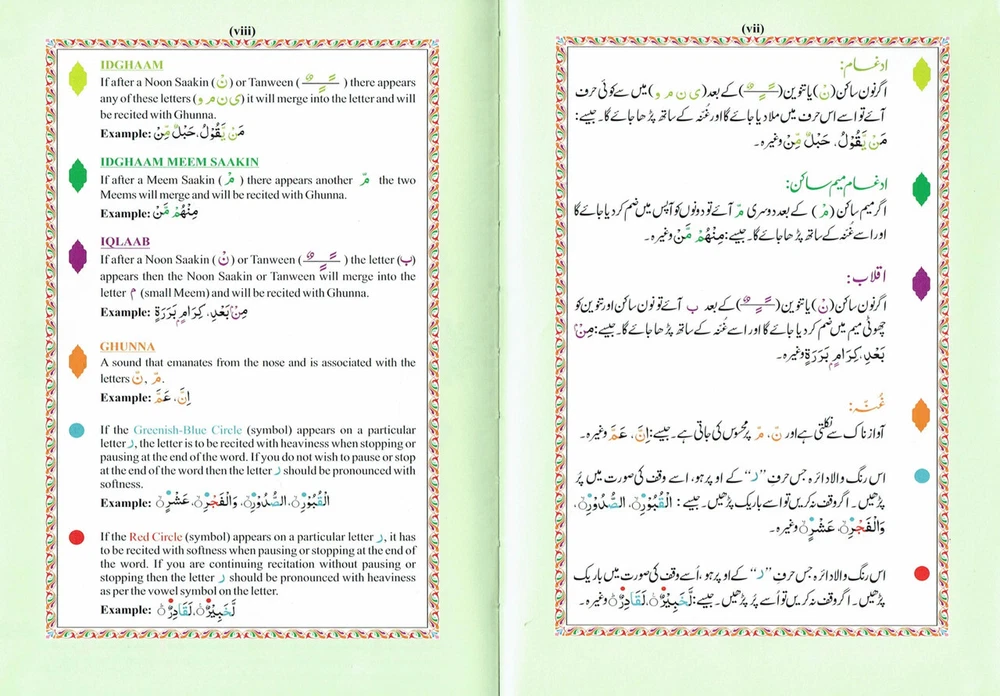 (viii)
IDGHAAM
If after a Noon Saakin (نْ) or Tanween (ـًـٍـٌ) there appears
any of these letters (ی ن م و) it will merge into the letter and will
be recited with Ghunna.
Example: مَنْ يَّقُوْلُ، حَبْلٌ مِّنْ
IDGHAAM MEEM SAAKIN
If after a Meem Saakin (مْ) there appears another مّ the two
Meems will merge and will be recited with Ghunna.
Example: مِنْهُمْ مَّنْ
IQLAAB
If after a Noon Saakin (نْ) or Tanween (ـًـٍـٌ) the letter (ب)
appears then the Noon Saakin or Tanween will merge into the
letter م (small Meem) and will be recited with Ghunna.
Example: مِنْۢ بَعْدِ، كِرَامٍۭ بَرَرَةٍ
GHUNNA
A sound that emanates from the nose and is associated with the
letters نّ، مّ.
Example: اِنَّ، عَمَّ
If the Greenish-Blue Circle (symbol) appears on a particular
letter ر, the letter is to be recited with heaviness when stopping or
pausing at the end of the word. If you do not wish to pause or stop
at the end of the word then the letter ر should be pronounced with
softness.
Example: الْقُبُوْرِ، الصُّدُوْرِ، وَالْفَجْرِ، عَشْرٍ
If the Red Circle (symbol) appears on a particular letter ر, it has
to be recited with softness when pausing or stopping at the end of
the word. If you are continuing recitation without pausing or
stopping then the letter ر should be pronounced with heaviness
as per the vowel symbol on the letter.
Example: لَّخَبِيْرٌ، لَقَادِرٌ
(vii)
ادغام:
اگر نون ساکن (نْ) یا تنوین (ـًـٍـٌ) کے بعد (ی ن م و) میں سے کوئی حرف
آئے تو اسے اس حرف میں ملا دیا جائے گا اور غُنّہ کے ساتھ پڑھا جائے گا۔ جیسے:
مَنْ يَّقُوْلُ، حَبْلٌ مِّنْ وغیرہ۔
ادغام میم ساکن:
اگر میم ساکن (مْ) کے بعد دوسری مّ آئے تو دونوں کو آپس میں ضم کر دیا جائے گا
اور اسے غُنّہ کے ساتھ پڑھا جائے گا۔ جیسے: مِنْهُمْ مَّنْ وغیرہ۔
اقلاب:
اگر نون ساکن (نْ) یا تنوین (ـًـٍـٌ) کے بعد ب آئے تو نون ساکن اور تنوین کو
چھوٹی میم میں ضم کر دیا جائے گا اور اسے غُنّہ کے ساتھ پڑھا جائے گا۔ جیسے: مِنْۢ
بَعْدِ، كِرَامٍۭ بَرَرَةٍ وغیرہ۔
غُنّہ:
آواز ناک سے نکلتی ہے اور نّ، مّ پر محسوس کی جاتی ہے۔ جیسے: اِنَّ، عَمَّ وغیرہ۔
اس رنگ والا دائرہ جس حرفِ ”ر“ کے اوپر ہو، اسے وقف کی صورت میں پُر
پڑھیں۔ اگر وقف نہ کریں تو اسے باریک پڑھیں۔ جیسے: الْقُبُوْرِ، الصُّدُوْرِ،
وَالْفَجْرِ، عَشْرٍ وغیرہ۔
اس رنگ والا دائرہ جس حرفِ ”ر“ کے اوپر ہو، اُسے وقف کی صورت میں باریک
پڑھیں۔ اگر وقف نہ کریں تو اُسے پُر پڑھیں۔ جیسے: لَّخَبِيْرٌ، لَقَادِرٌ وغیرہ۔